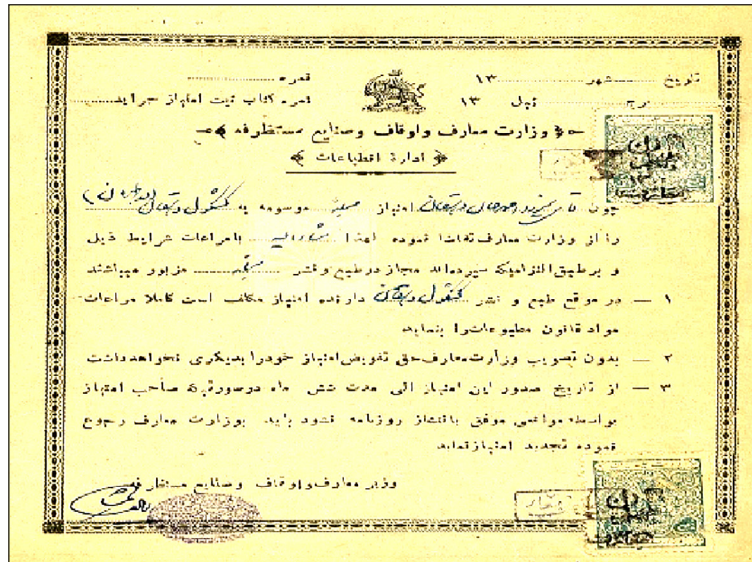 تاریخ ........ شهر ........ ۱۳ نمره ........
برج ........ ئیل ۱۳ نمره کتاب ثبت امتیاز جراید ........
وزارت معارف واوقاف وصنایع مستظرفه
ادارهٔ انطباعات
چون آقای امتیاز مجله موسومه به کشکول دهقان
را از وزارت معارف تقاضا نموده لهذا مشارالیه بامراعات شرایط ذیل
و برطبق التزامیکه سپرده‌اند مجاز درطبع و نشر مجله مزبور میباشند
۱ — در موقع طبع و نشر کشکول دهقان دارنده امتیاز مکلف است کاملا مراعات
مواد قانون مطبوعات را بنماید
۲ — بدون تصویب وزارت معارف حق تفویض امتیاز خودرا بدیگری نخواهدداشت
۳ — از تاریخ صدور این امتیاز الی مدت شش ماه درصورتیکه صاحب امتیاز
بواسطه موانعی موفق بانتشار روزنامه نشود باید بوزارت معارف رجوع
نموده تجدید امتیازنماید
وزیر معارف واوقاف وصنایع مستظرفه